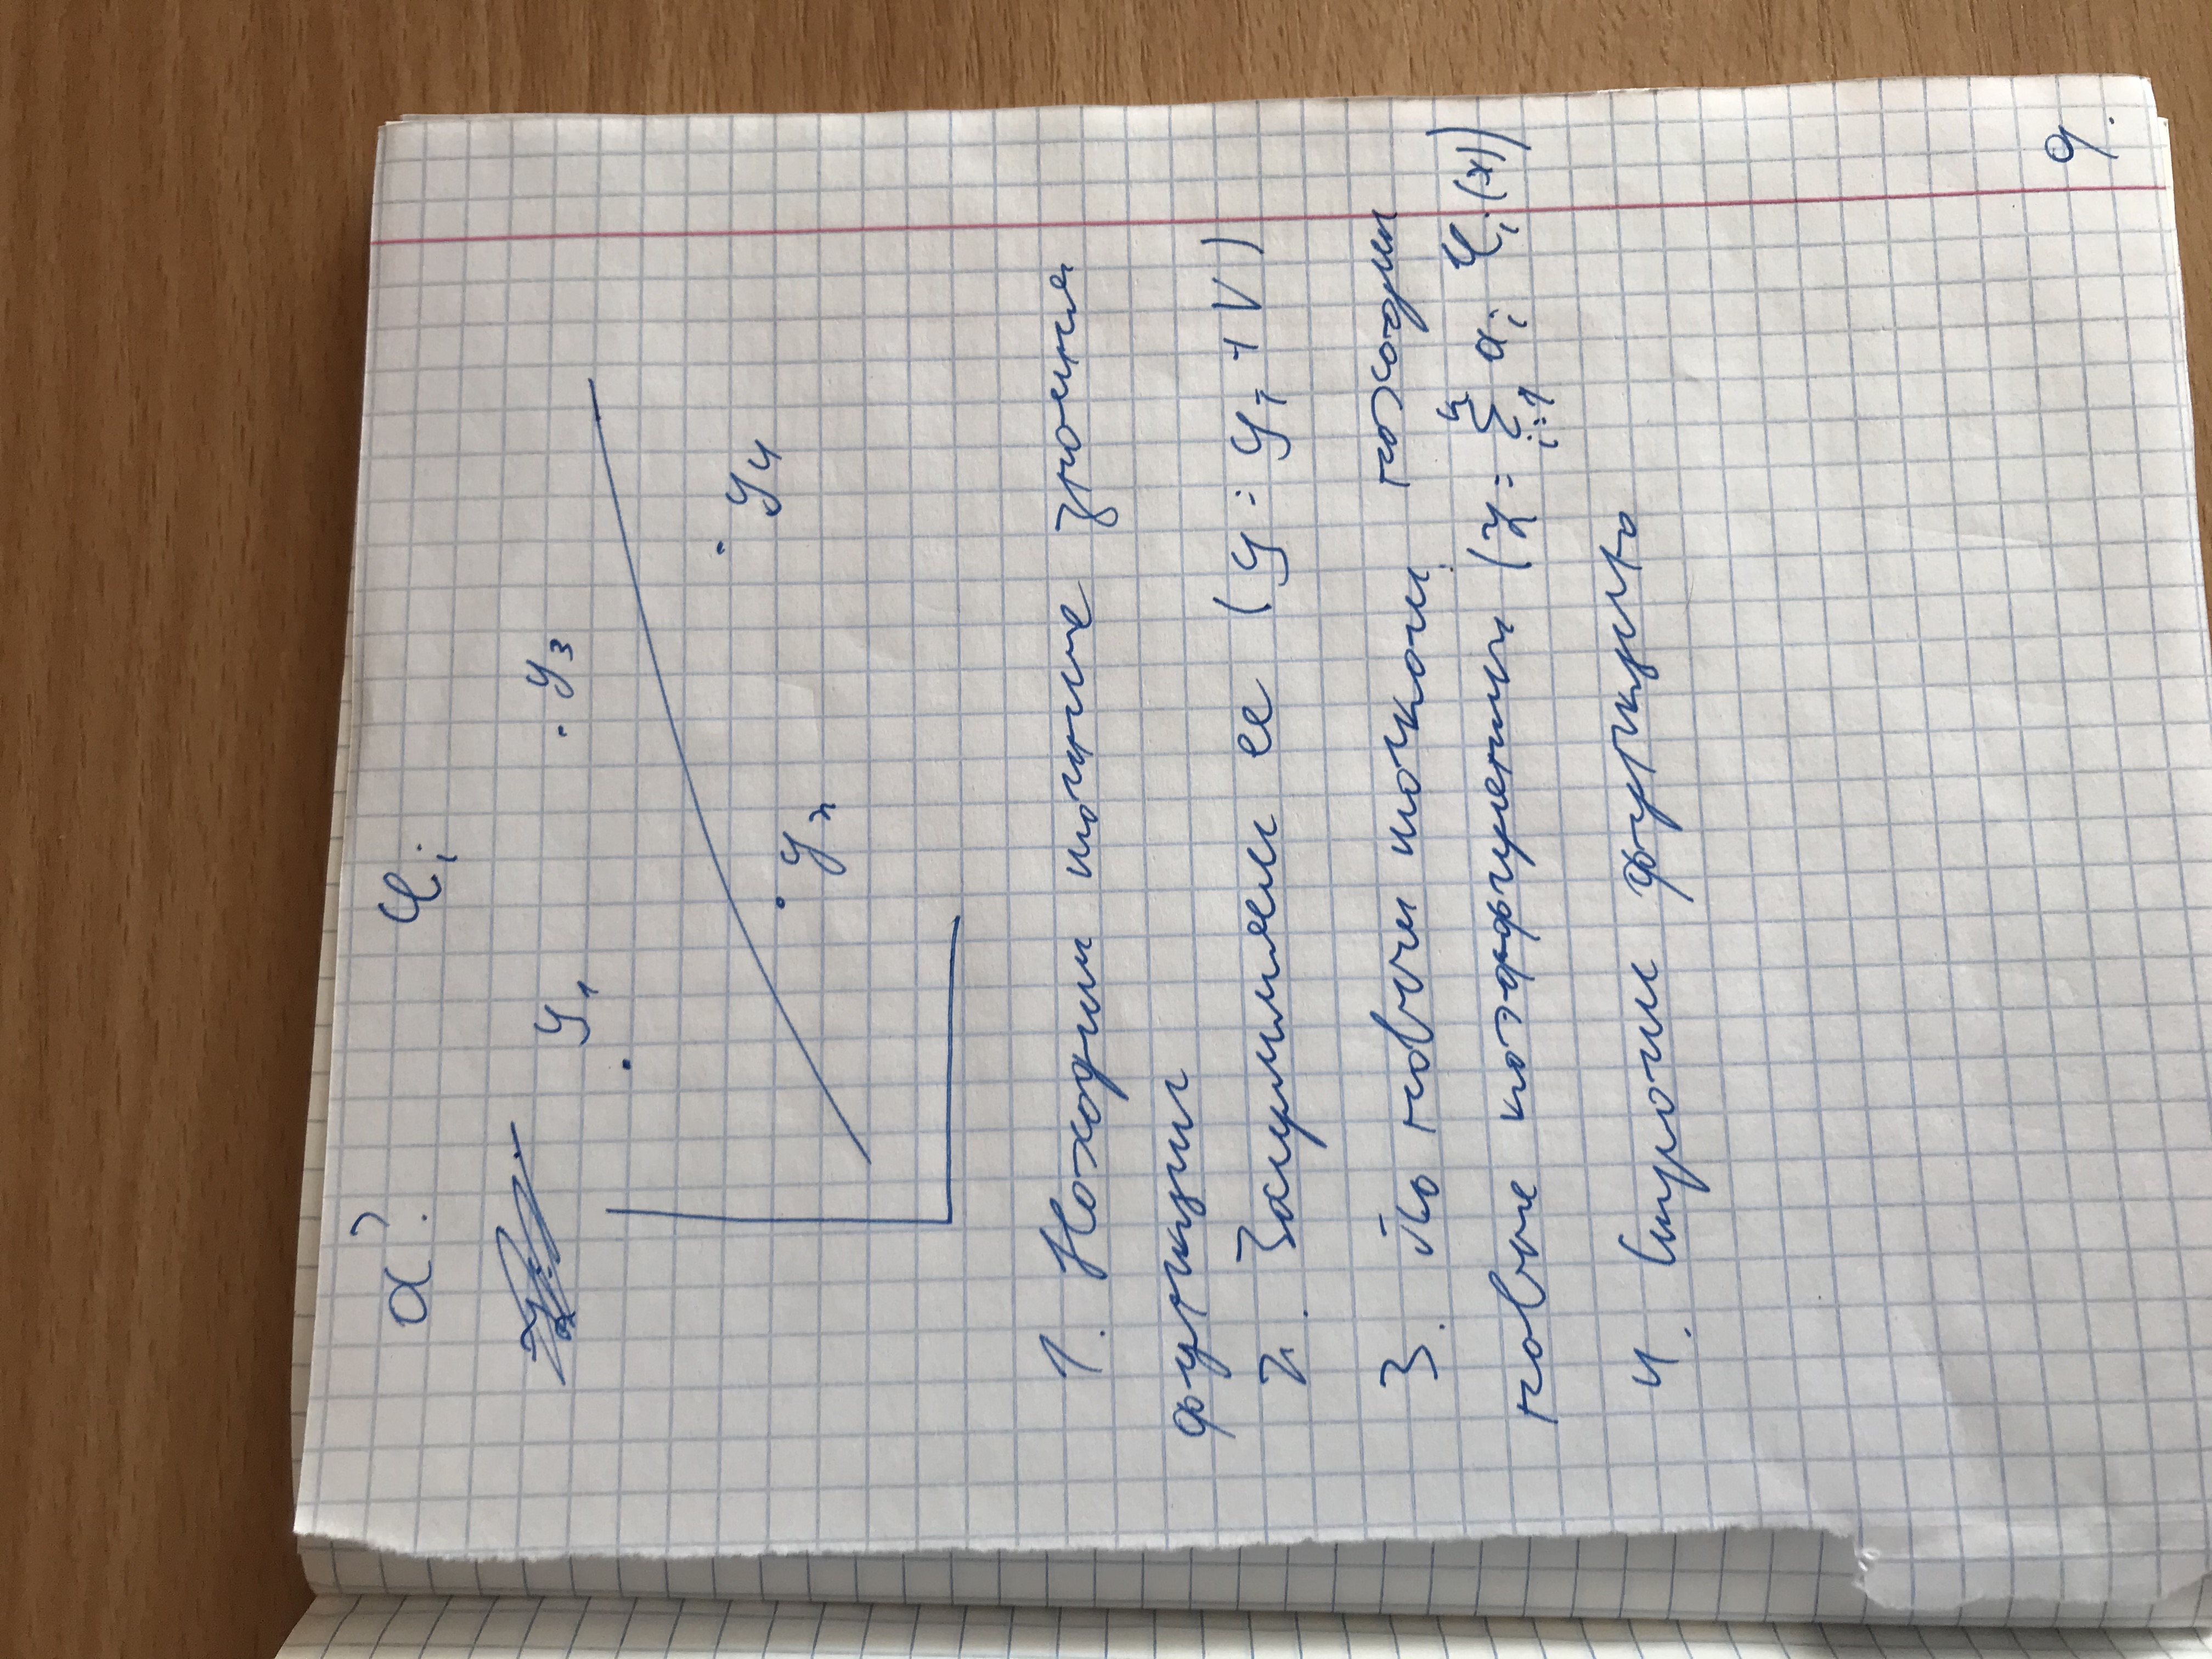 α? φi
y1 y3
y4
y2
1. Находим точные значния
функции
2. Зашумляем ее (y = yi + V)
3. По новым точкам находим
новые коэффициенты (y = Σ i=1 n αi φi(x))
4. Строим функцию
9.